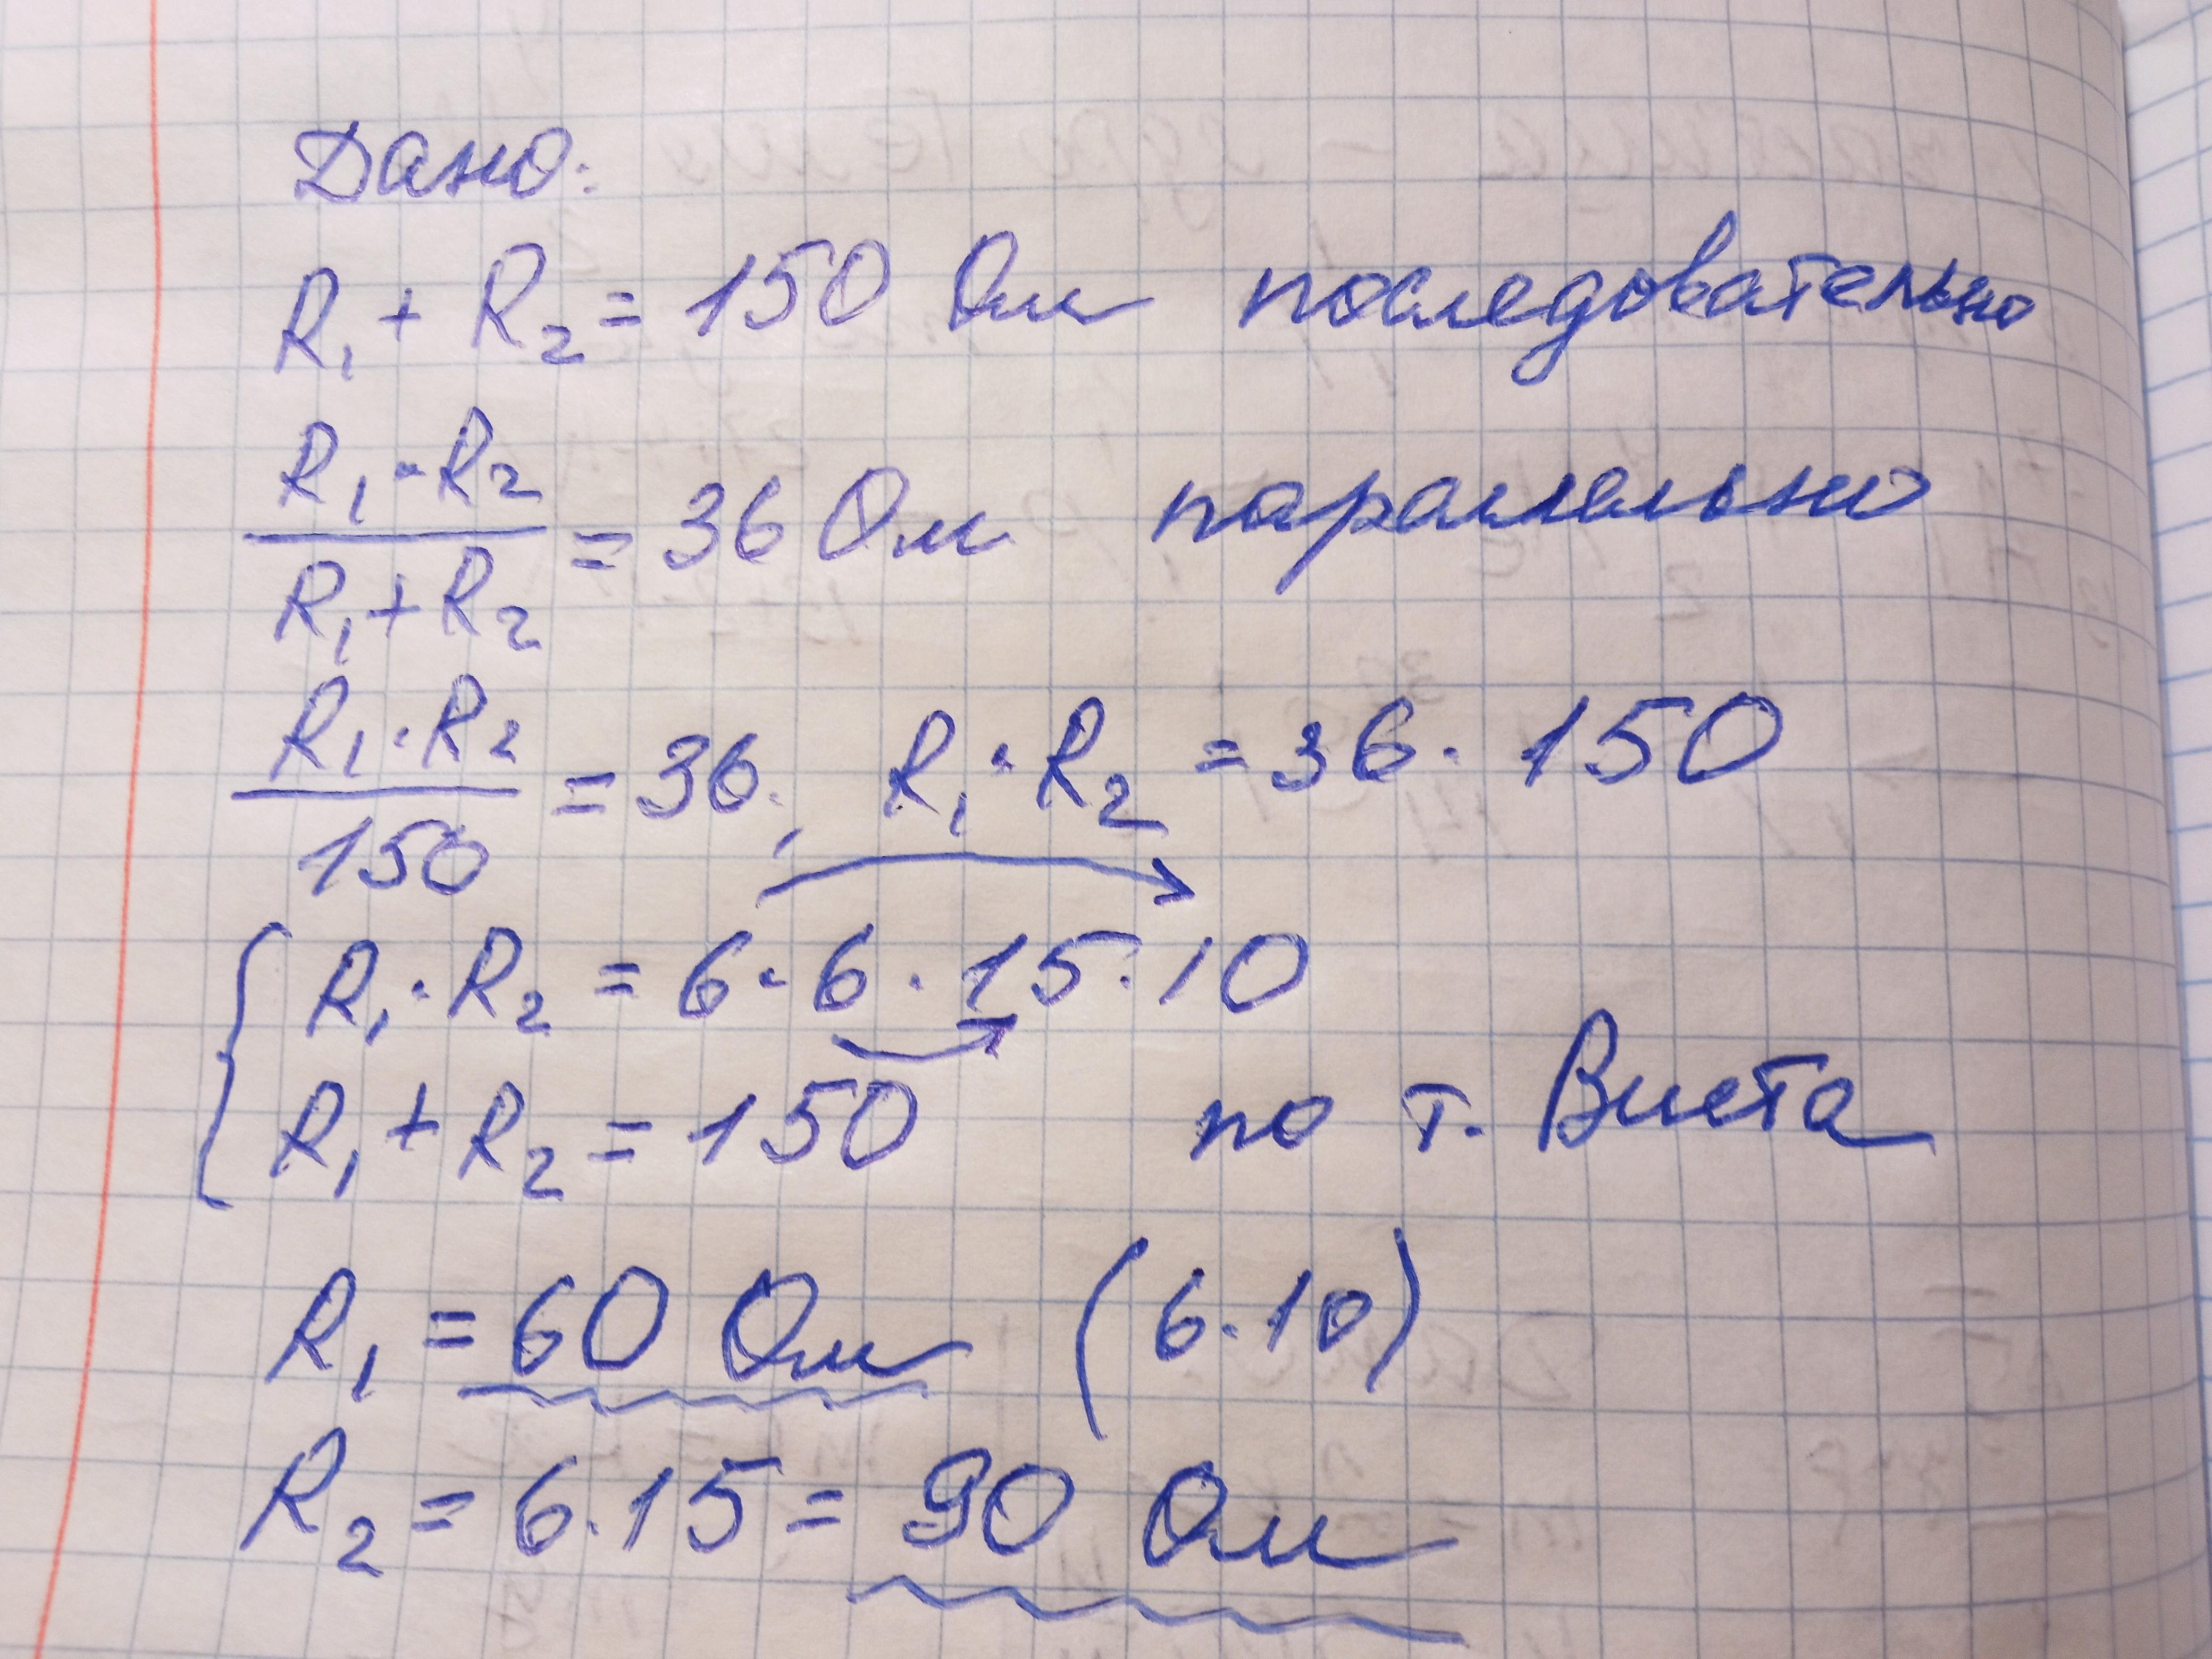 Дано:
R₁ + R₂ = 150 Ом последовательно
R₁·R₂ / R₁+R₂ = 36 Ом параллельно
R₁·R₂ / 150 = 36, R₁·R₂ = 36·150
{ R₁·R₂ = 6·6·15·10
R₁ + R₂ = 150 по т. Виета
R₁ = 60 Ом (6·10)
R₂ = 6·15 = 90 Ом